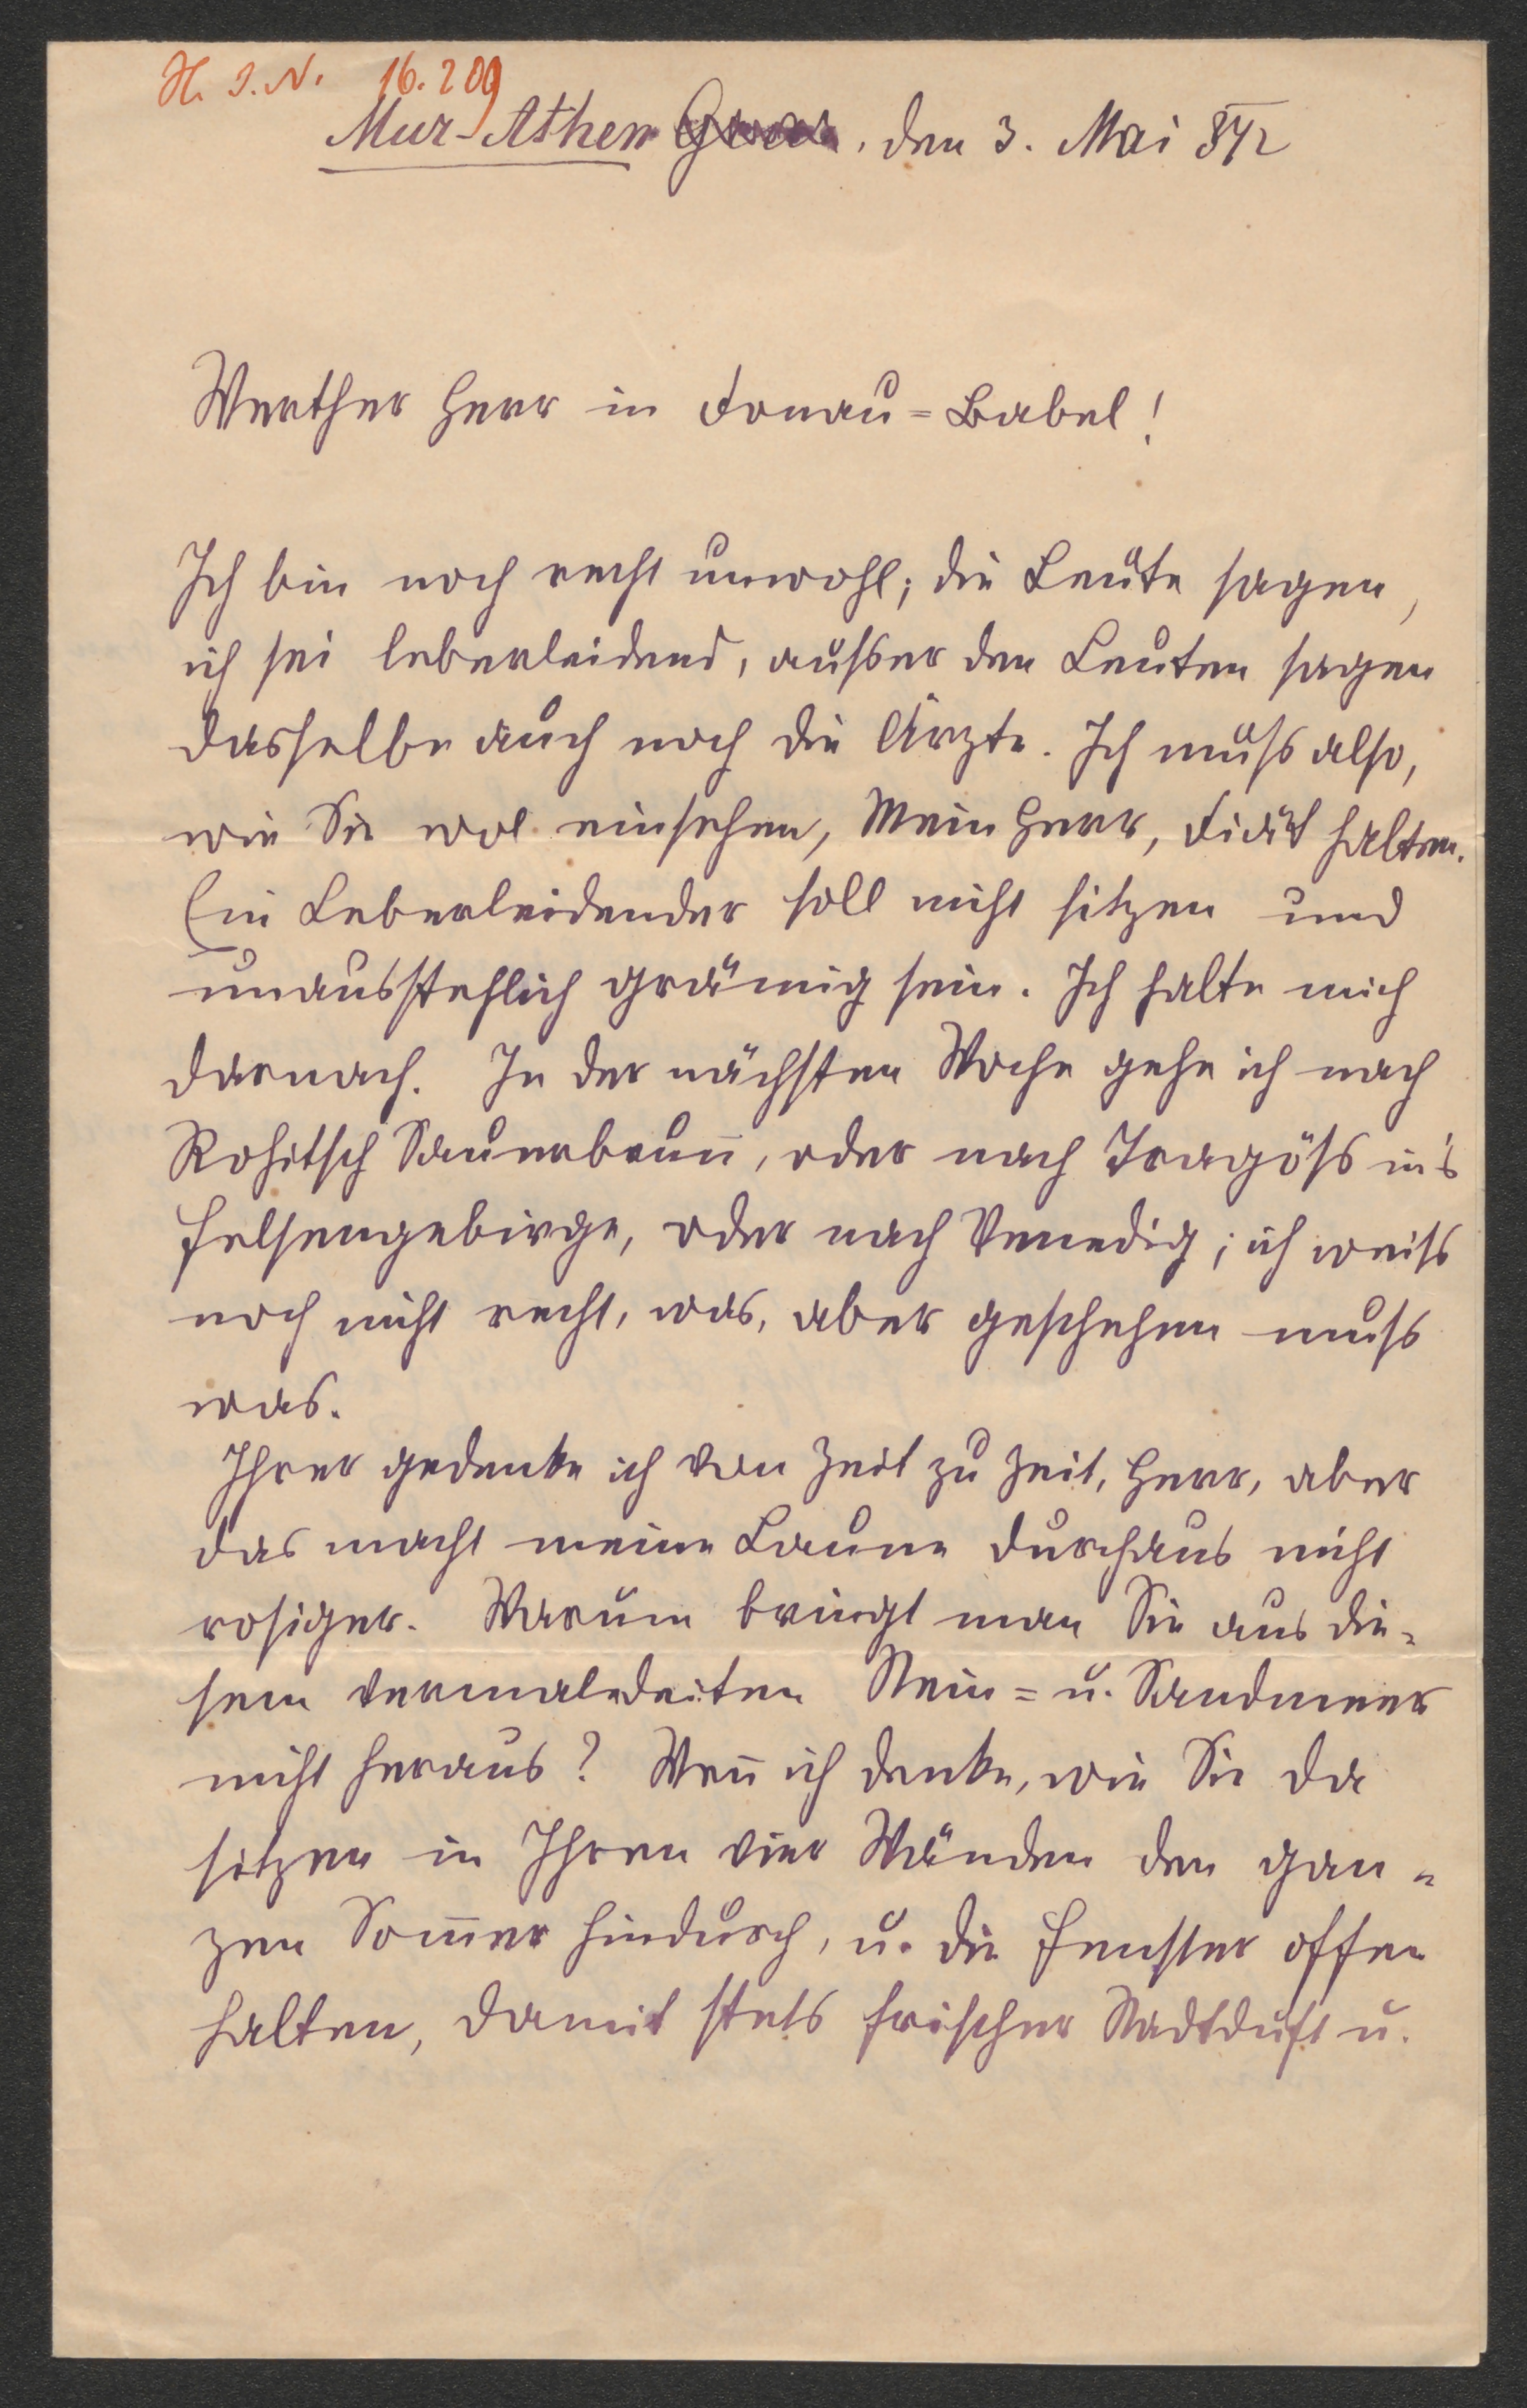 H. I. N. 16.209
Mur-Athen Graz, den 3. Mai 872
Werther Herr in Donau=Babel!
Ich bin noch recht unwohl; die Leute sagen,
ich sei leberleidend, außer den Leuten sagen
dasselbe auch noch die Ärzte. Ich muß also,
wie Sie wol einsehen, Mein Herr, Diät halten.
Ein Leberleidender soll nicht sitzen und
unausstehlich grämig sein. Ich halte mich
darnach. In der nächsten Woche gehe ich nach
Rohitsch Sauerbrun̄, oder nach Tragöß in's
Felsengebirge, oder nach Venedig; ich weiß
noch nicht recht, was, aber geschehen muß
was.
Ihrer gedenke ich von Zeit zu Zeit, Herr, aber
das macht meine Laune durchaus nicht
rosiger. Warum bringt man Sie aus die=
sem vermaledeiten Stein= u. Sandmeer
nicht heraus? Wen̄ ich denke, wie Sie da
sitzen in Ihren vier Wänden den gan=
zen Som̄er hindurch, u. die Fenster offen
halten, damit stets frischer Stadtduft u.